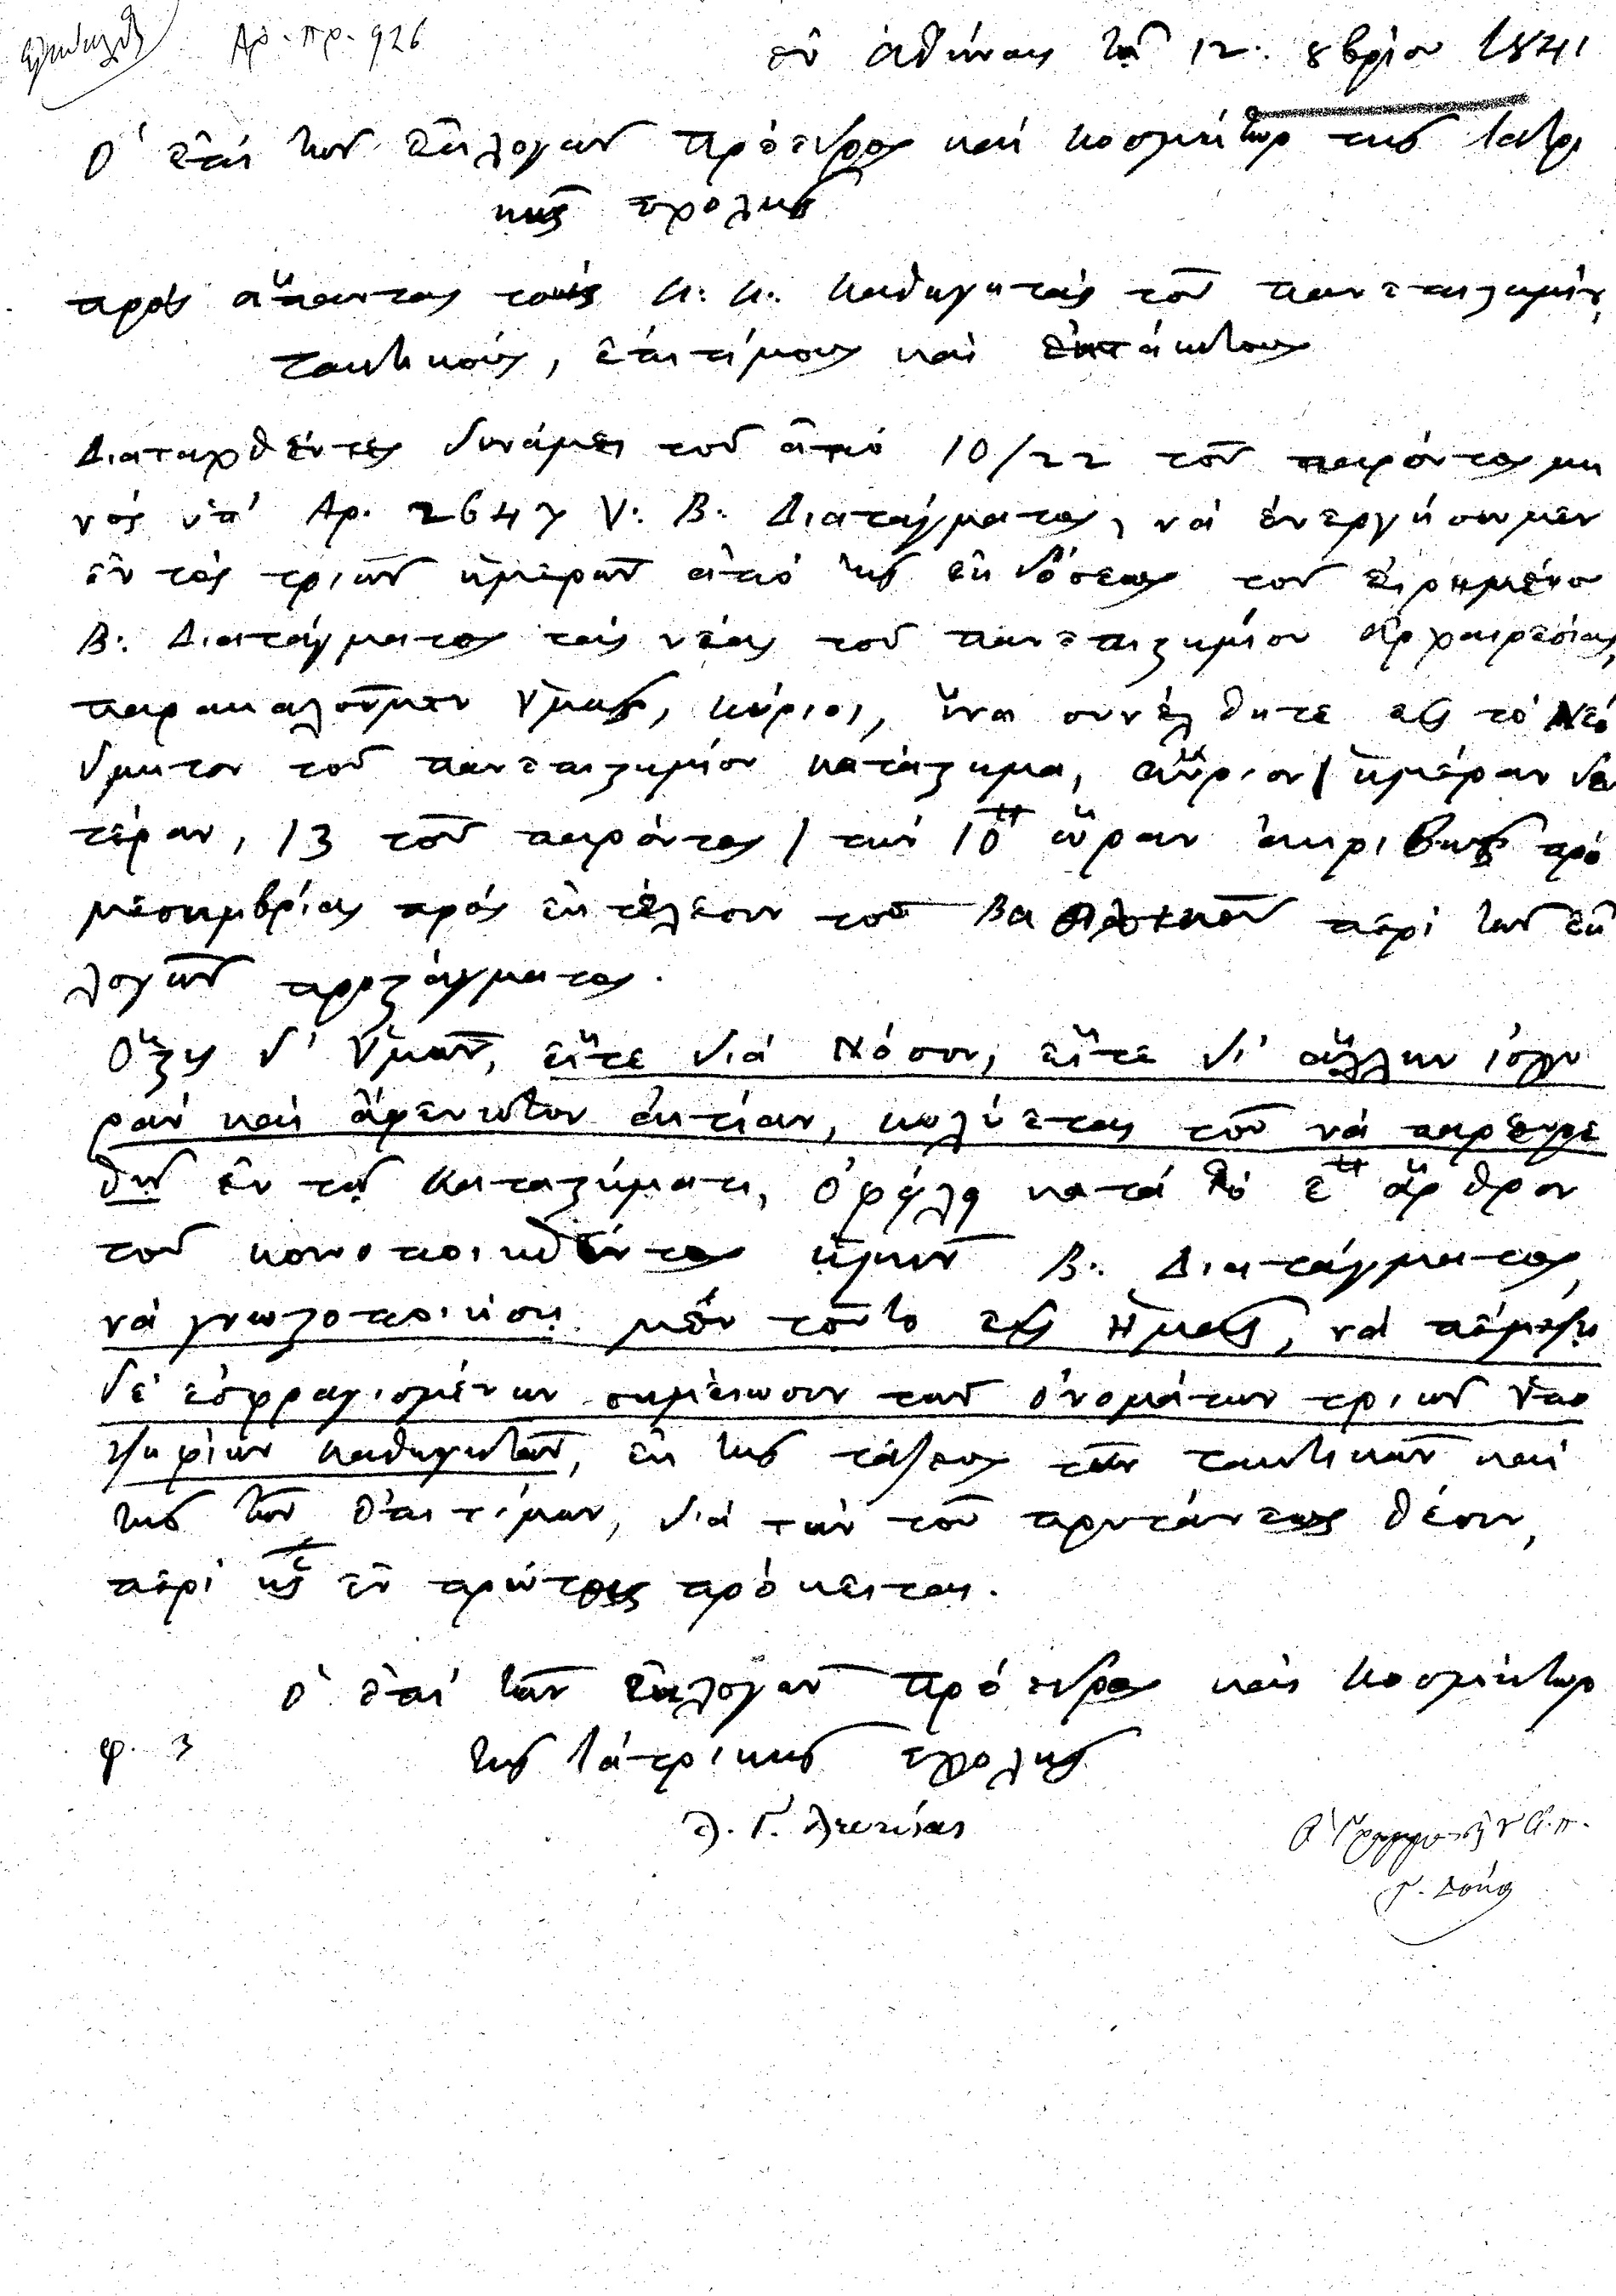 Ἀρ. πρ. 926
ἐν Ἀθήναις τῇ 12. 8βρίου 1841
Ὁ ἐπὶ τῶν ἐκλογῶν Πρόεδρος καὶ Κοσμήτωρ τῆς Ἰατρι
κῆς σχολῆς
πρὸς ἅπαντας τοὺς Κ. Κ. Καθηγητὰς τοῦ πανεπιστημίου,
τακτικούς, ἐπιτίμους καὶ ἐκτάκτους
Διαταχθέντες δυνάμει τοῦ ἀπὸ 10/22 τοῦ παρόντος μη
νὸς ὑπ' Ἀρ. 2647 Β. Διατάγματος, νὰ ἐνεργήσωμεν
ἐντὸς τριῶν ἡμερῶν ἀπὸ τῆς ἐκδόσεως τοῦ εἰρημένου
Β. Διατάγματος τὰς νέας τοῦ πανεπιστημίου ἀρχαιρεσίας,
παρακαλοῦμεν Ὑμᾶς, κύριοι, ἵνα συνέλθητε εἰς τὸ Νεό
δμητον τοῦ πανεπιστημίου κατάστημα, αὔριον / ἡμέραν δευ
τέραν, 13 τοῦ παρόντος / τὴν 10ην ὥραν ἀκριβῶς πρὸ
μεσημβρίας πρὸς ἐκτέλεσιν τοῦ Βασιλικοῦ περὶ τῶν ἐκ
λογῶν προστάγματος.
Ὅστις δ' Ὑμῶν, εἴτε διὰ Νόσον, εἴτε δι' ἄλλην ἰσχυ
ρὰν καὶ ἄφευκτον αἰτίαν, κωλύεται τοῦ νὰ παρευρε
θῇ ἐν τῷ Καταστήματι, ὀφείλει κατὰ τὸ ε ἄρθρον
τοῦ κοινοποιηθέντος ἡμῖν Β. Διατάγματος,
νὰ γνωστοποιήσῃ μὲν τοῦτο εἰς Ἡμᾶς, νὰ πέμψῃ
δὲ ἐσφραγισμένην σημείωσιν τῶν ὀνομάτων τριῶν ὑπο
ψηφίων καθηγητῶν, ἐκ τῆς τάξεως τῶν τακτικῶν καὶ
τῆς τῶν ἐπιτίμων, διὰ τὴν τοῦ πρυτάνεως θέσιν,
περὶ ἧς ἐν πρώτοις πρόκειται.
Ὁ ἐπὶ τῶν ἐκλογῶν Πρόεδρος καὶ Κοσμήτωρ
φ. 3 τῆς Ἰατρικῆς σχολῆς
Γ. Λευκίας
Ὁ Γραμματεὺς